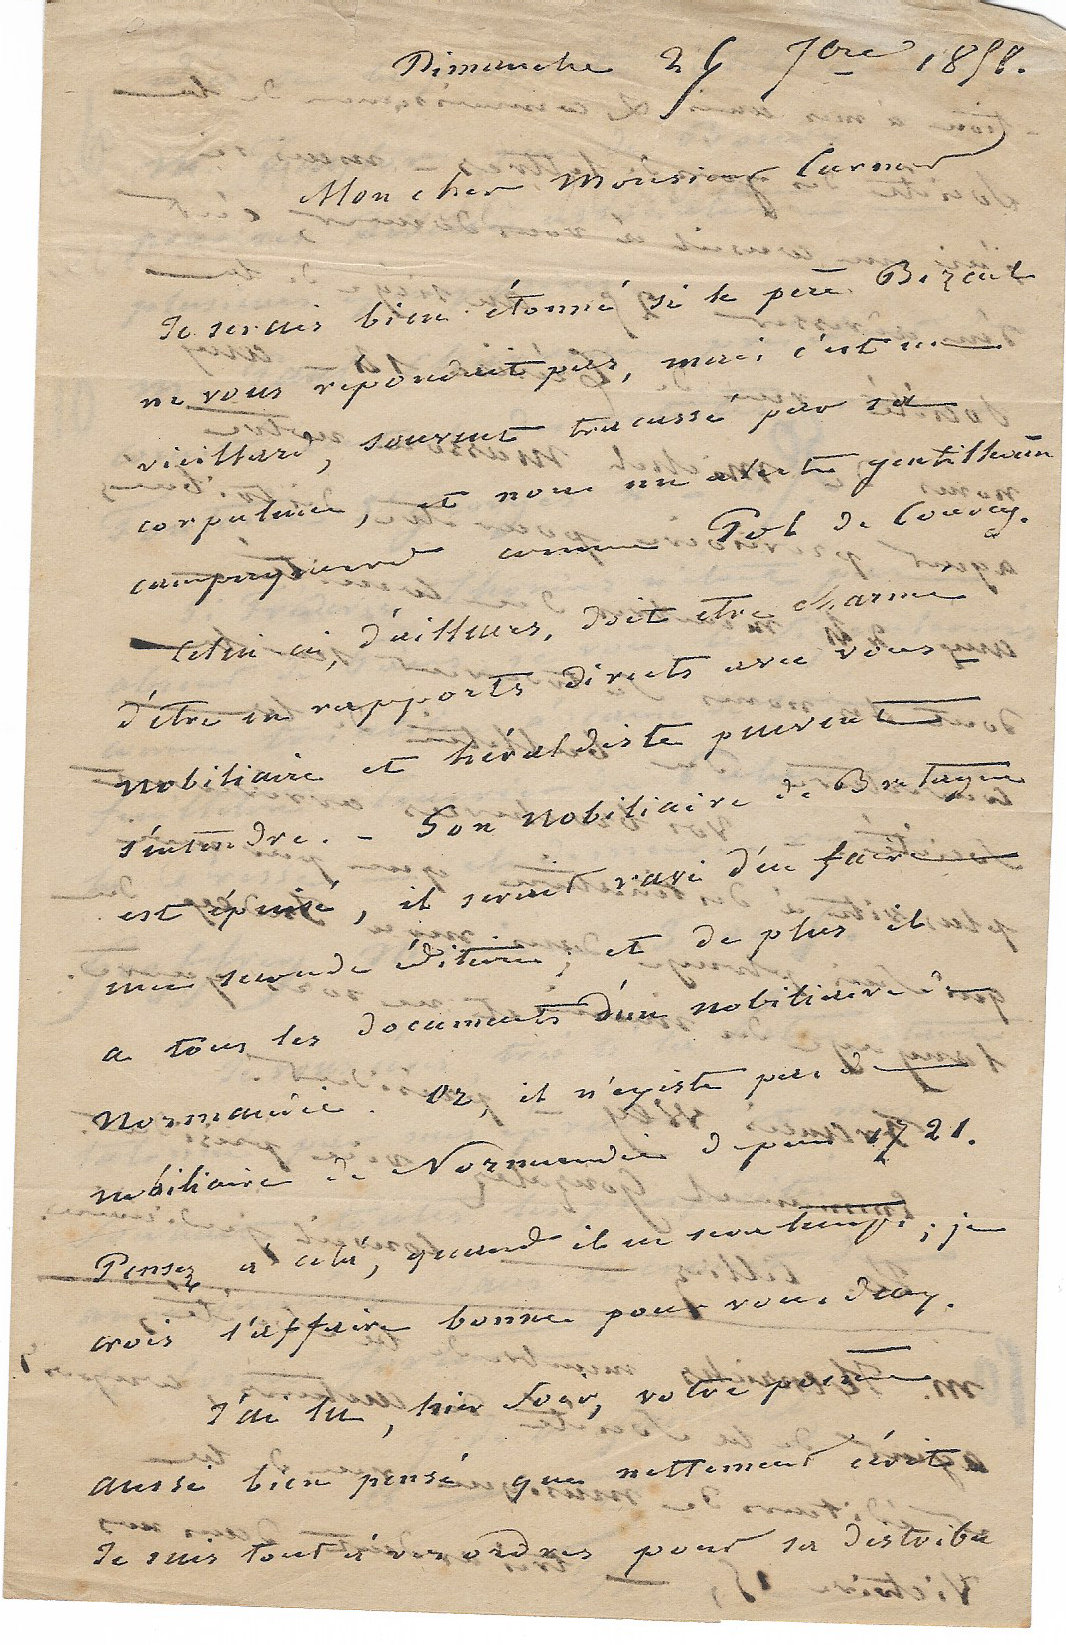 Dimanche 26 7bre 1858.
Mon cher Monsieur Curmer
Je serais bien étonné si le père Bizeul
ne vous repondait pas, mais c'est un
vieillard, souvent tracassé par sa
corpulence, et non un alerte gentilhom̄e
campagnard comme Pol de Courcy.
Celui ci, d'ailleurs, doit etre charmé
d'être en rapports directs avec vous
Nobiliaire et héraldiste peuvent
s'entendre. – Son Nobiliaire de Bretagne
est épuisé, il serait ravi d'en faire
une seconde édition; et de plus il
a tous les documents d'un nobiliaire de
Normandie. Or, il n'existe pas de
nobiliaire de Normandie depuis 1721.
Pensez à cela, quand il en sera temps; je
crois l'affaire bonne pour vous deux.
J'ai lu, hier Soir, votre poëme
aussi bien pensé que nettement écrit
Je suis tout à vos ordres pour sa distribu